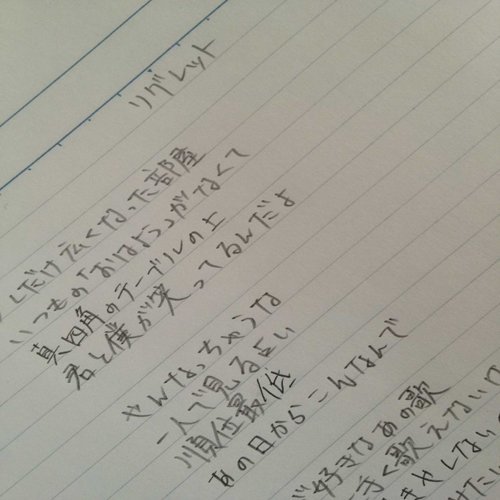 リグレット
しだけ広くなった部屋
いつもの「おはよう」がなくて
真四角のテーブルの上
君と僕が笑ってるんだよ
やんなっちゃうな
一人で見る占い
順位最低
あの日からこんなんで
好きなあの歌
手く歌えないの
きやしない